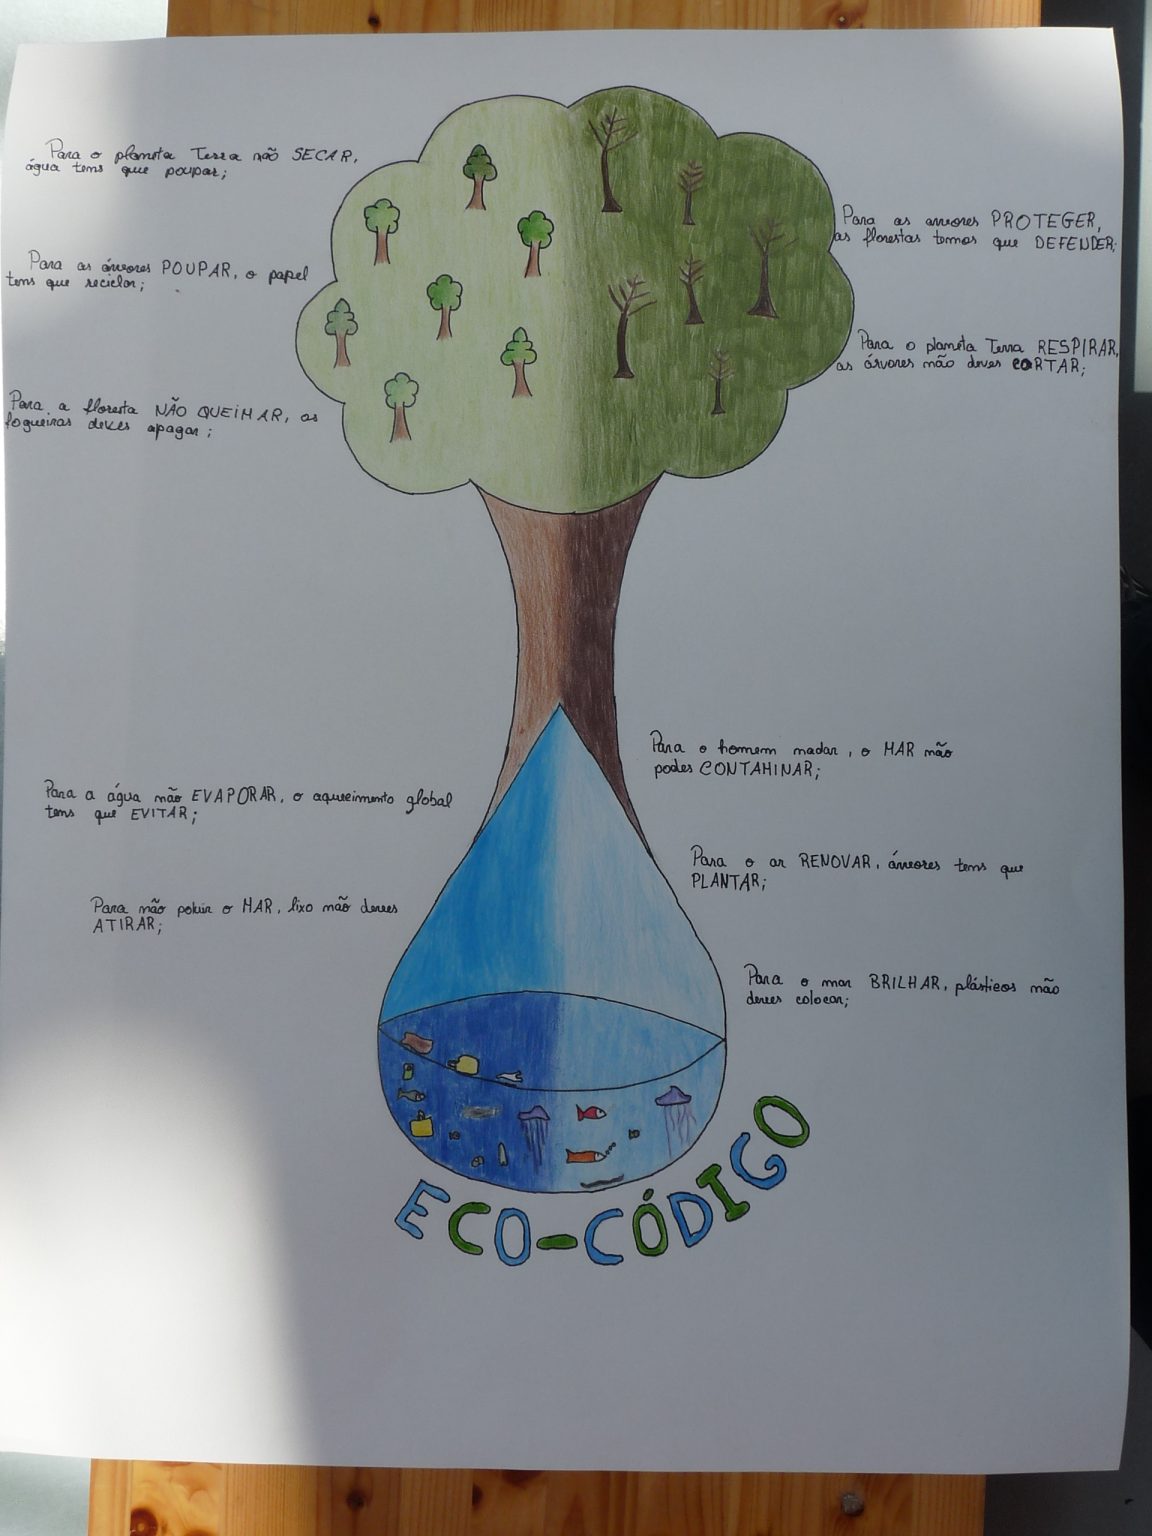 Para o planeta Terra não SECAR,
água tens que poupar;
Para as árvores POUPAR, o papel
tens que reciclar;
Para a floresta NÃO QUEIMAR, as
fogueiras deves apagar;
Para as árvores PROTEGER,
as florestas temos que DEFENDER;
Para o planeta Terra RESPIRAR,
as árvores não deves CORTAR;
Para a água não EVAPORAR, o aquecimento global
tens que EVITAR;
Para não poluir o MAR, lixo não deves
ATIRAR;
Para o homem nadar, o MAR não
podes CONTAMINAR;
Para o ar RENOVAR, árvores tens que
PLANTAR;
Para o mar BRILHAR, plásticos não
deves colocar;
ECO-CÓDIGO